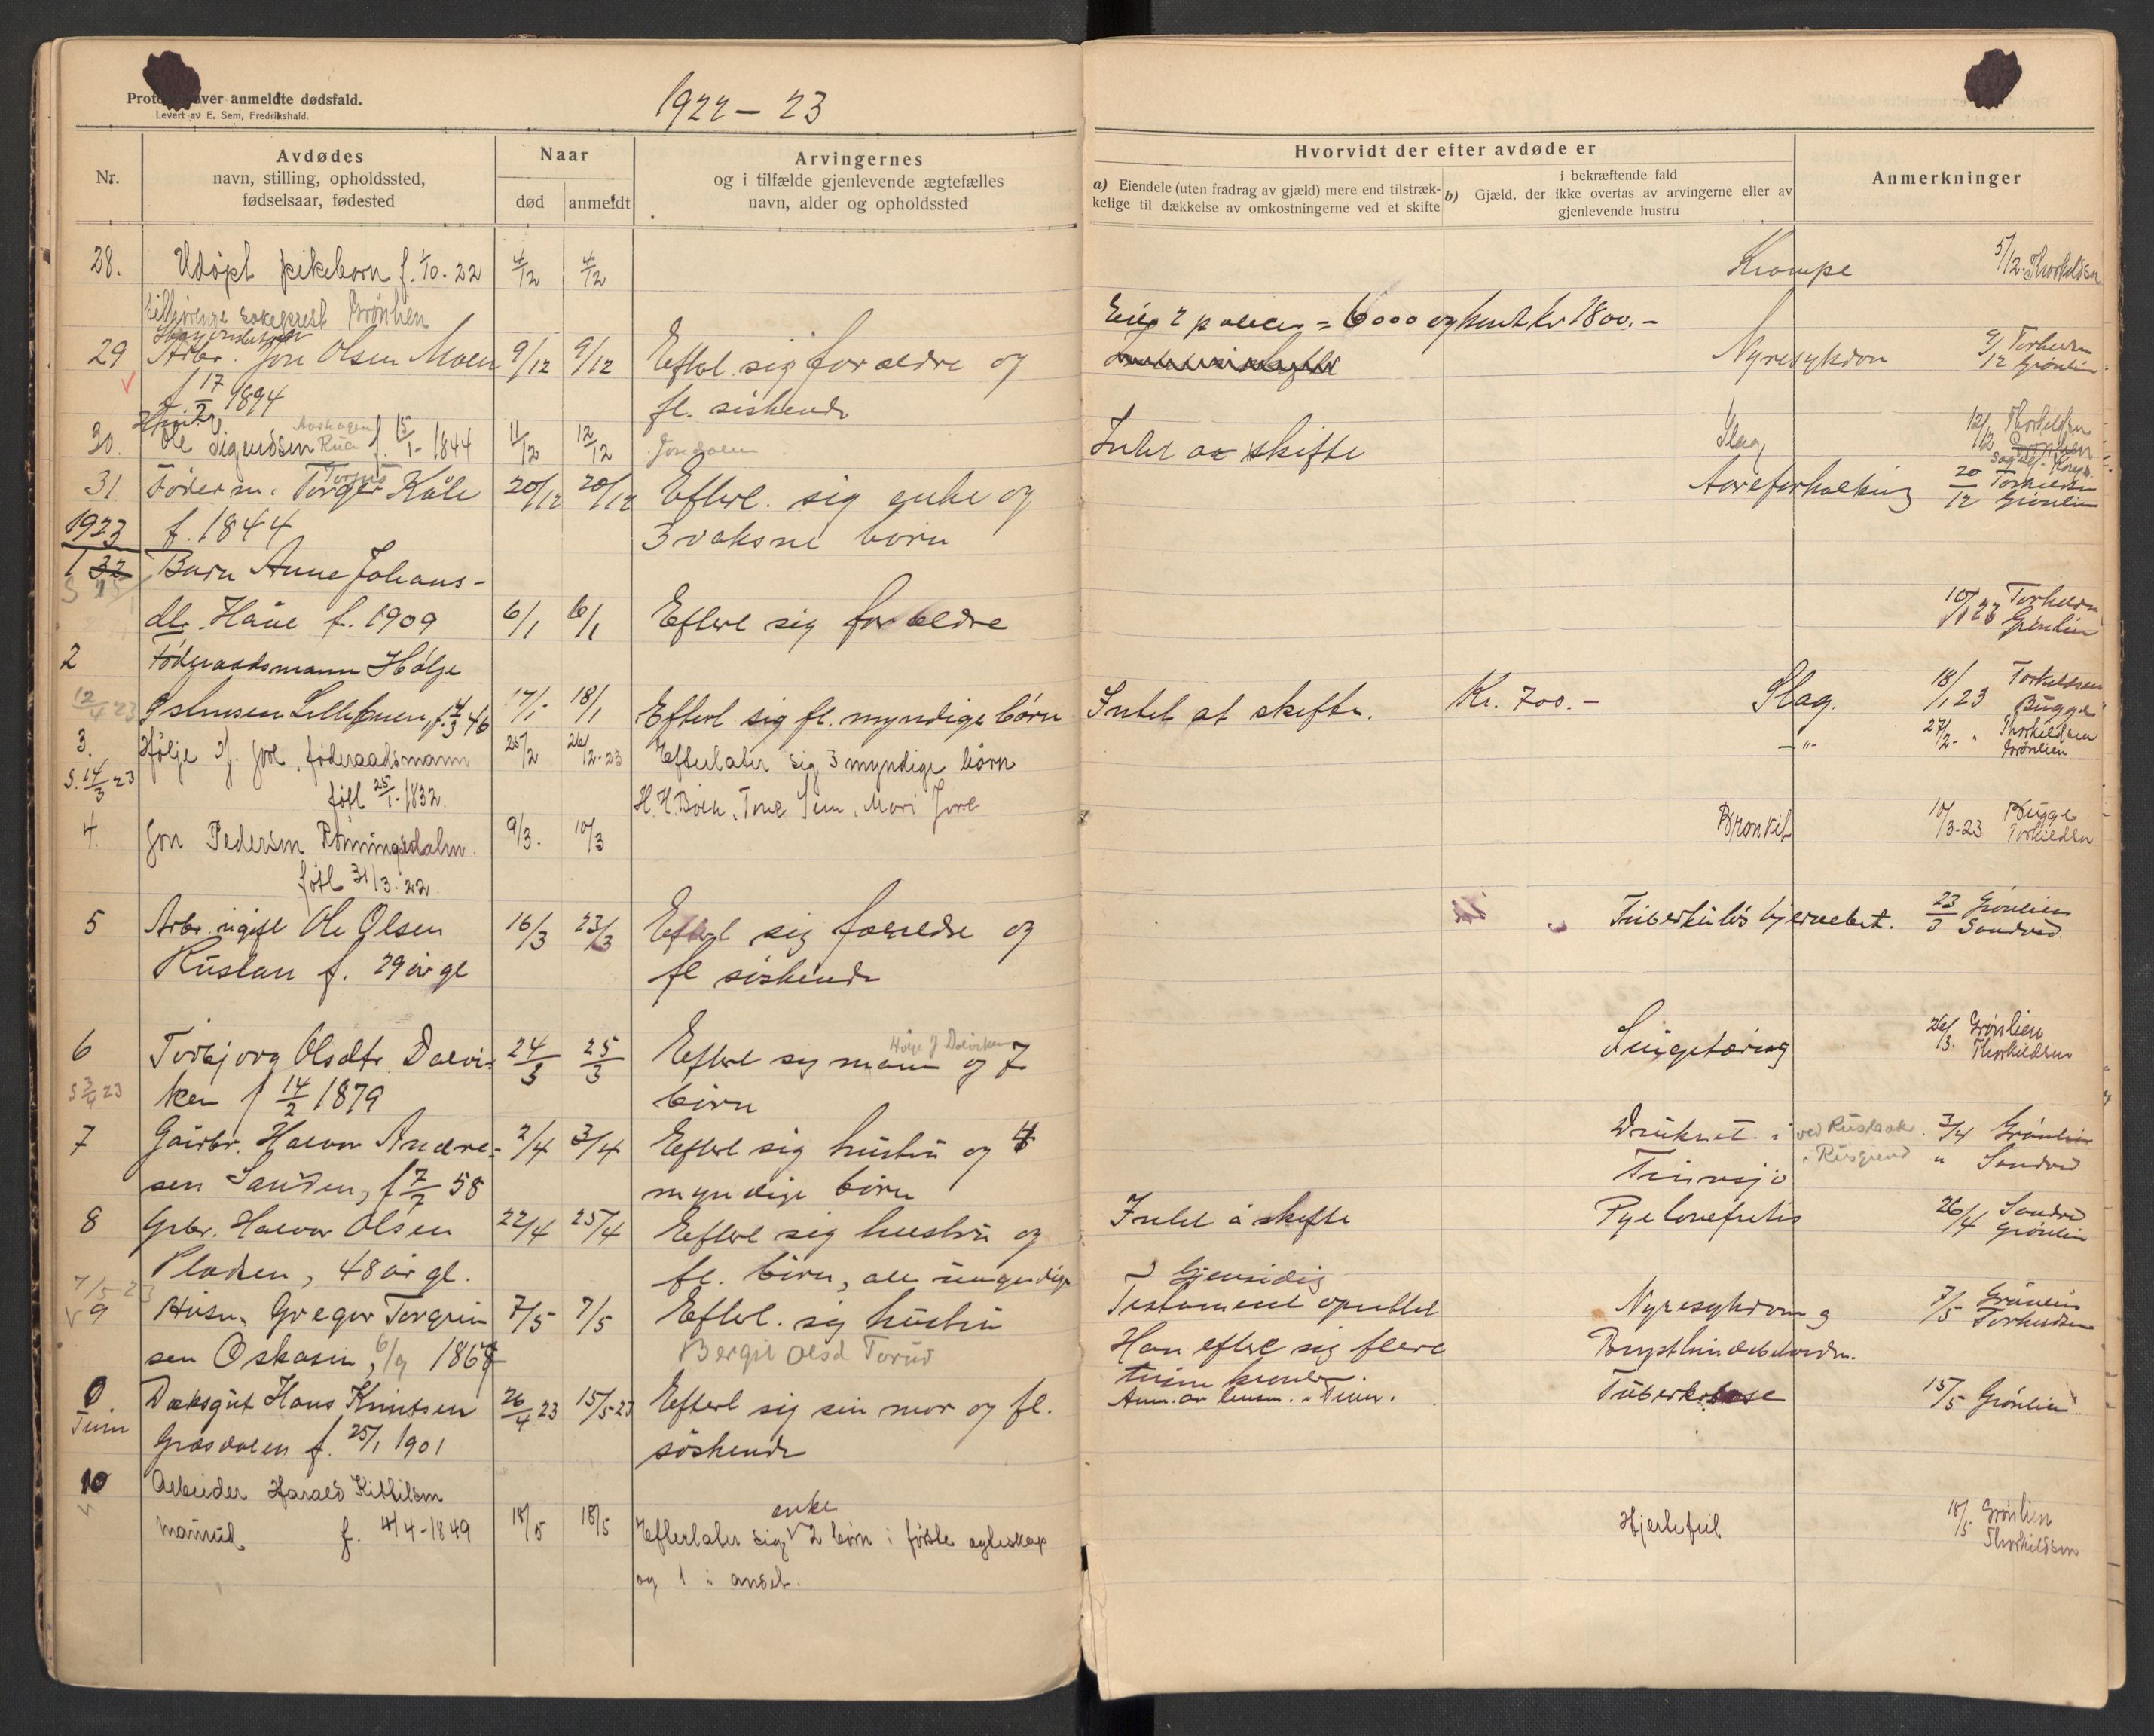 over anmeldte dødsfald.
Levert av E. Sem, Fredrikshald.
1922 – 23
Nr.
Avdødes
navn, stilling, opholdssted,
fødselsaar, fødested
Naar
død
anmeldt
Arvingernes
og i tilfælde gjenlevende ægtefælles
navn, alder og opholdssted
Hvorvidt der efter avdøde er
a) Eiendele (uten fradrag av gjæld) mere end tilstræk-
kelige til dækkelse av omkostningerne ved et skifte
i bekræftende fald
b) Gjæld, der ikke overtas av arvingerne eller av
gjenlevende hustru
Anmerkninger
28. Udøpt pikebarn f. 1/10-22 4/12 4/12 Krampe 5/12 Thorkildsen
sokeprest Grönlien
Eier 2 poliser = 6000 og kontkr 1800.-
29 Arbr. Jon Olsen Moen 9/12 9/12 Efterl. sig forældre og Nyresykdom 9/12 Torkildsen Grönlien
f. 17/2 1894 fl. søskende
30. Ole Sigurdsen Rua f. 15/1-1844 11/12 12/12 Jondalen Intet at skifte Slag 12/12 Thorkildsen
31 Föderm. Torger Kåle 20/12 20/12 Efterl. sig enke og Aareforkalking 20/12 Torkildsen Grönlien
1923 f. 1844 3 voksne börn
1 32 Barn Anne Johans-
dtr. Håue f. 1909 6/1 6/1 Efterl sig forældre 10/1 23 Torkildsen Grönlien
2 Föderaadsmann Hölje
12/4 23 17/1 18/1 Efterl sig fl. myndige börn Intet at skifte. Kr. 700.- Slag. 18/1 23 Torkildsen Bugge
3. Hölje H. Jore, föderaadsmann 25/2 26/2-23 Efterlater sig 3 myndige börn -"- 27/2 - " Thorkildsen Grönlien
S. 14/3 23 född 25/1-1832. H. H. Böen, Tone Sem, Mari Jore
4. Jon Pedersen Rönningsdalen. 9/3. 10/3 Bronkit 10/3-23 Bugge Torkildsen
född 31/3.22.
5 Arbr. ugift Ole Olsen 16/3 23/3 Efterl sig forældre og Tuberkulös hjernebet. 23/3 Grönlien Sandvid.
Rustan f. 29 år gl fl søskende
6 Torbjorg Olsdtr Dalvi- 24/3 25/3 Efterl sig mann og 7 Lungetæring 26/3. Grönlien Thorkildsen
S 3/4 23 ken f 14/2 1879 börn
7 Gårbr. Halvor Andre- 2/4 3/4 Efterl sig hustru og 4 Druknet i ved 3/4 Grönlien
sen Sanden, f 7/2 58 myndige börn Tinnsjö " Sandvid
8 Gbr. Halvor Olsen 22/4 25/4 Efterl sig hustru og Intet å skifte Pyelonefritis 26/4 Sandvid Grönlien
Pladsen, 48 år gl. fl. börn, alle umyndige
7/5 23 Gjensidig
9 Husm. Gregor Torgrim 7/5 7/5 Efterl. sig hustru Testament oprettet Nyresykdom og 7/5 Grönlien Torkildsen
sen Oskasen, 6/9 1868 Bergit Olsd Torud Han efterl sig flere
tusen kroner.
0 Tinn Daksgut Hans Knutsen 26/4 23 15/5-23 Efterl sig sin mor og fl. Anm. av lensm. i Tinn. Tuberkulose 15/5 Grönlien
Grasdalen f. 25/1 1901 söskende
10 Arbeider Harald Kittilsen
f. 4/4-1849 18/5 18/5 Efterlater sig enke 2 börn i förste egteskap Hjertefeil 18/5 Grönlien Thorkildsen
og 1 i andet.